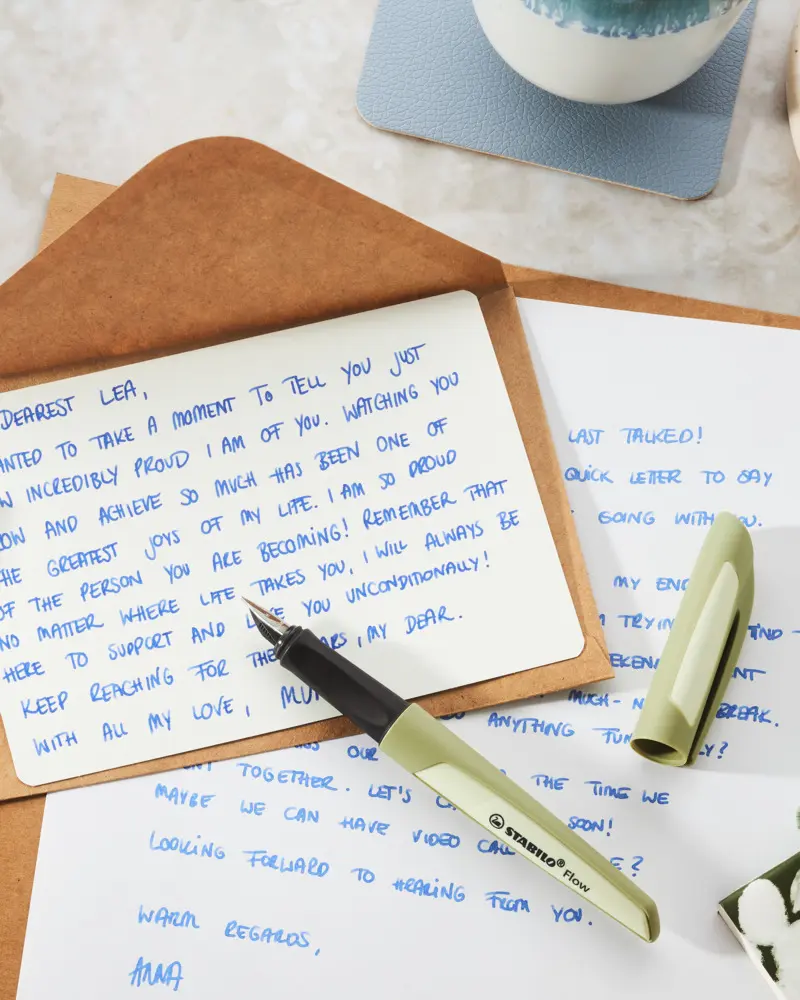 DEAREST LEA,
ANTED TO TAKE A MOMENT TO TELL YOU JUST
W INCREDIBLY PROUD I AM OF YOU. WATCHING YOU
OW AND ACHIEVE SO MUCH HAS BEEN ONE OF
HE GREATEST JOYS OF MY LIFE. I AM SO PROUD
OF THE PERSON YOU ARE BECOMING! REMEMBER THAT
NO MATTER WHERE LIFE TAKES YOU, I WILL ALWAYS BE
HERE TO SUPPORT AND YOU UNCONDITIONALLY!
KEEP REACHING FOR THE ARS, MY DEAR.
WITH ALL MY LOVE, MU
LAST TALKED!
QUICK LETTER TO SAY
GOING WITH OU.
MY END
TRYIN FIND
EKEN NT
MUCH- N BREAK.
ANYTHING FUN LY?
OUR
TOGETHER. LET'S THE TIME WE
MAYBE WE CAN HAVE VIDEO CALL SOON!
E?
LOOKING FORWARD TO HEARING FROM YOU.
WARM REGARDS,
ANNA
STABILO® Flow